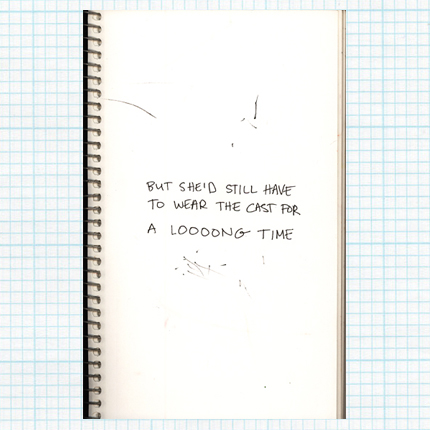 BUT SHE'D STILL HAVE
TO WEAR THE CAST FOR
A LOOOONG TIME